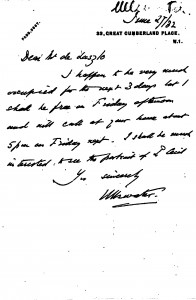 June 27/32
39, GREAT CUMBERLAND PLACE,
W.1.
Dear Mr de Laszlo
I happen to be very much
occupied for the next 3 days but I
shall be free on Friday afternoon
and will call at your house about
5 pm on Friday next. I shall be much
interested to see the portrait of Ld Cecil
Yrs sincerely